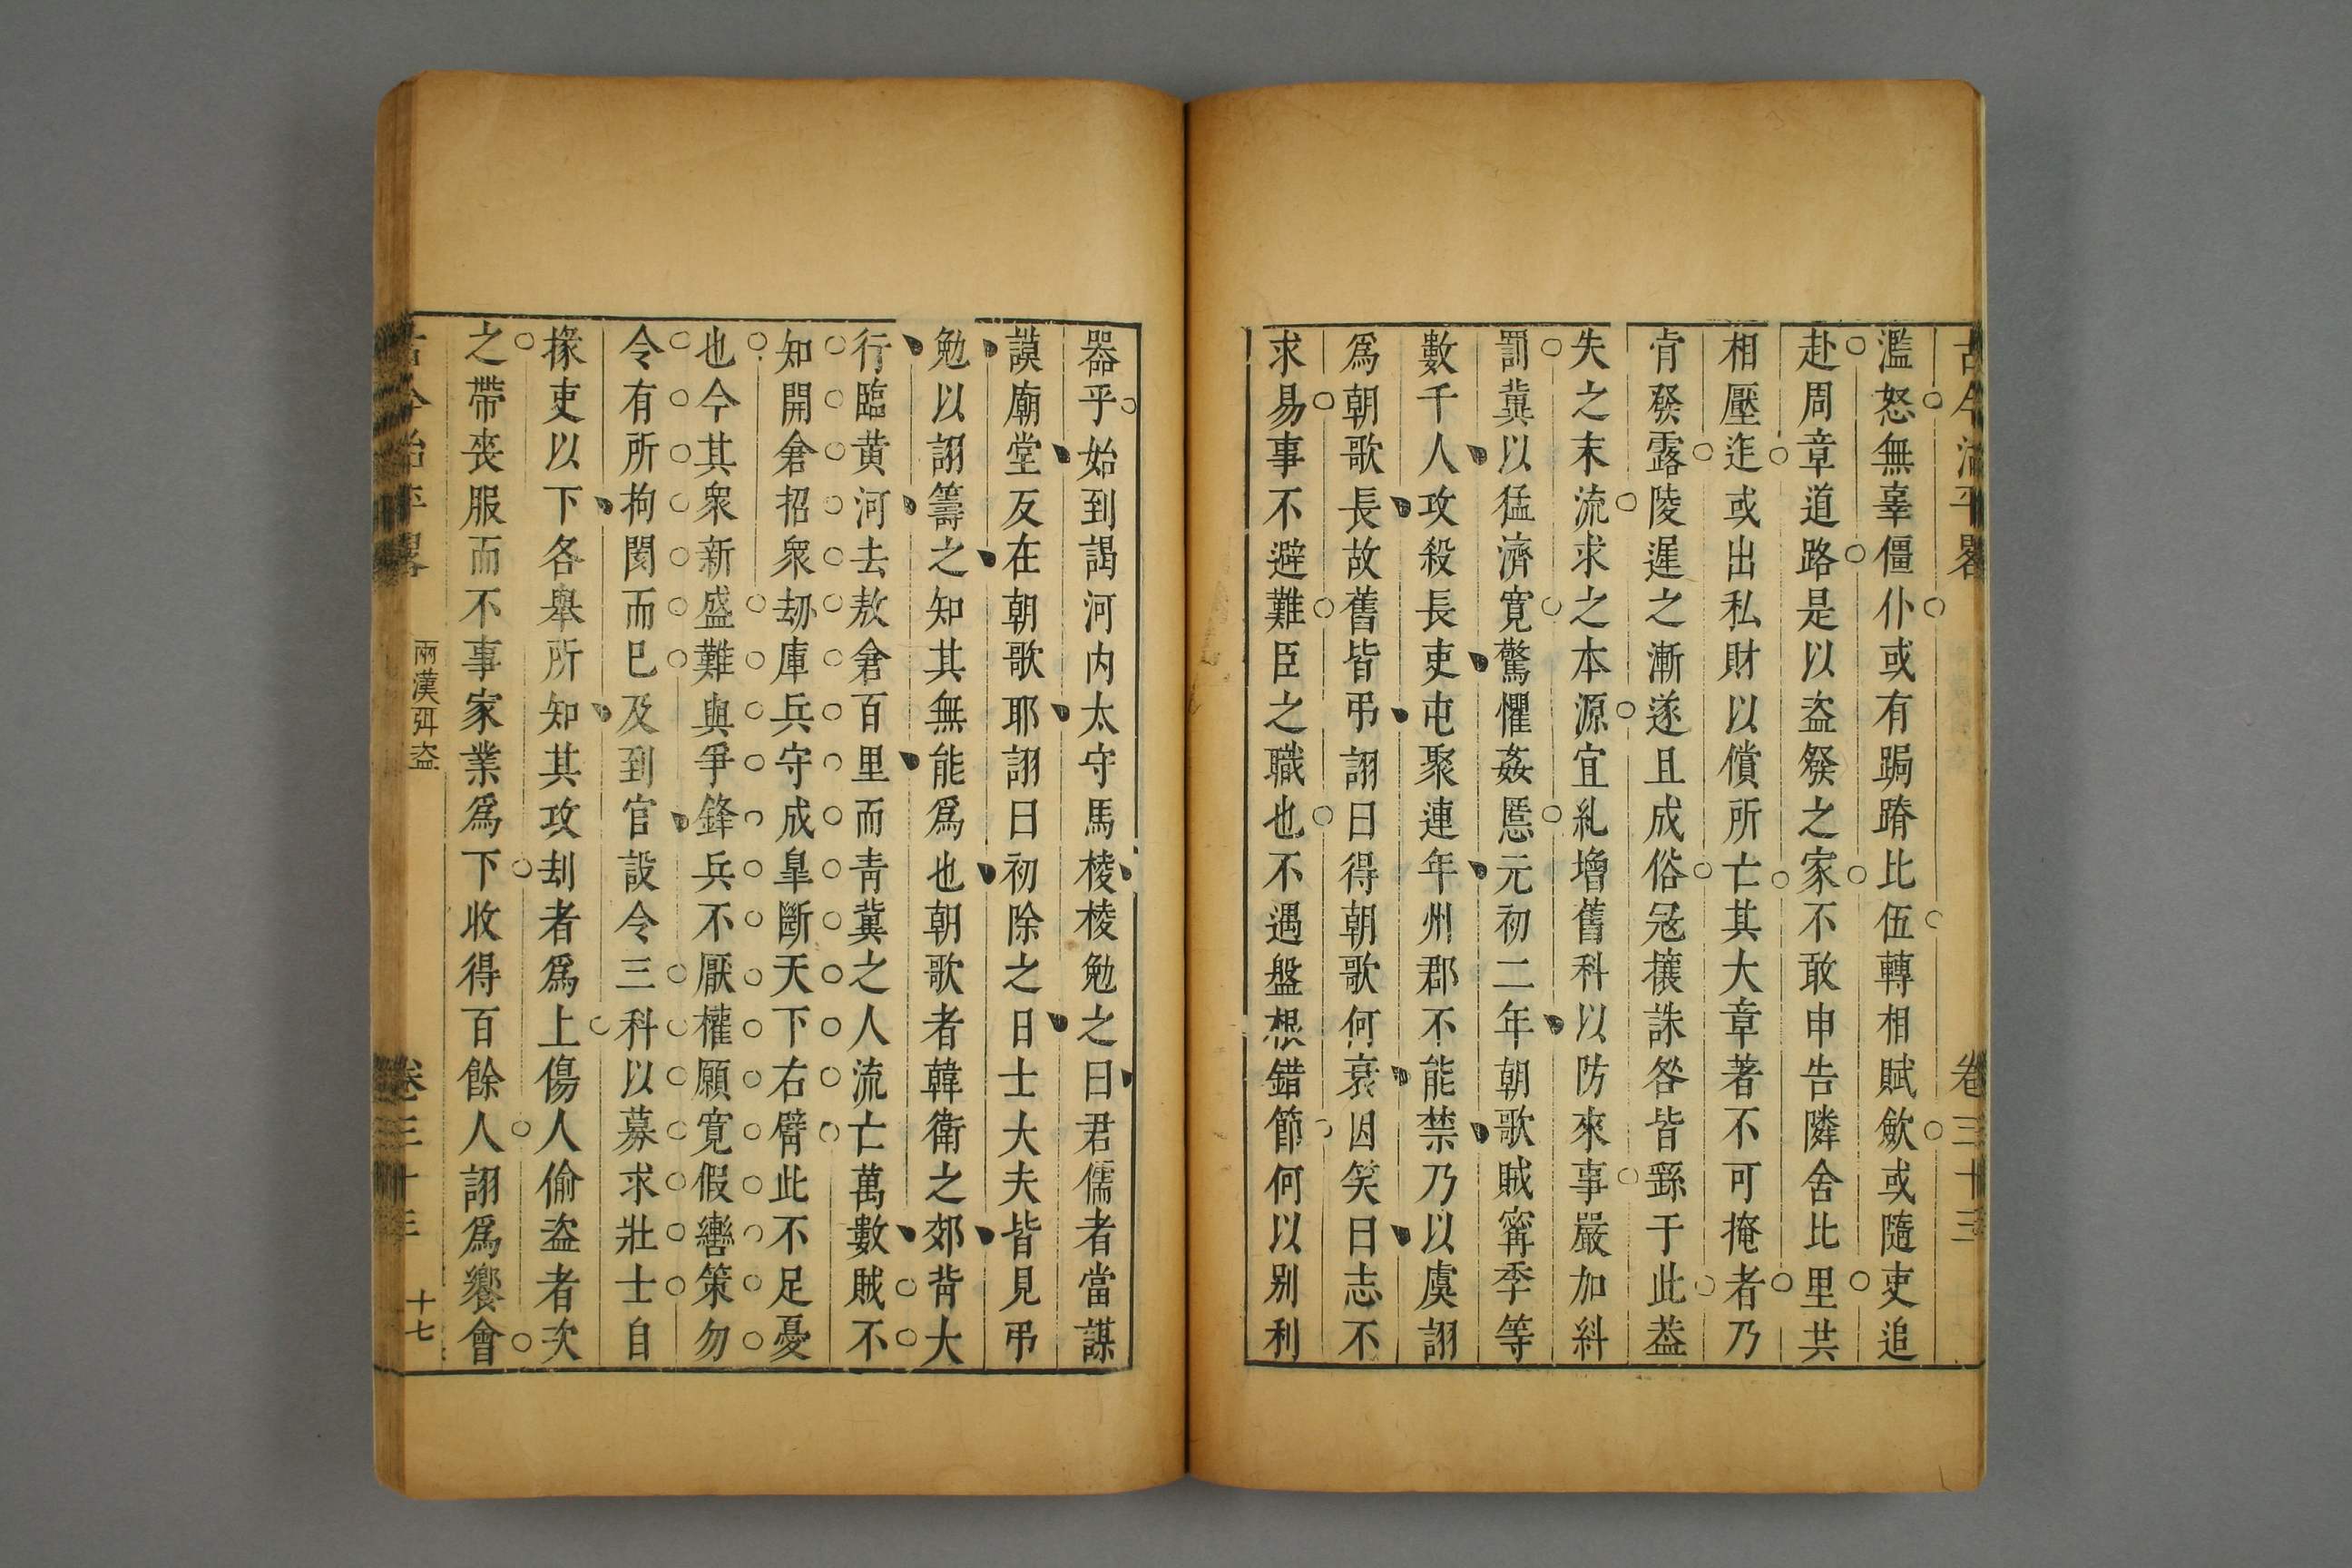 古今治平畧 卷三十三
濫怒無辜僵仆或有跼蹐比伍轉相賦歛或隨吏追
赴周章道路是以盗發之家不敢申告隣舍比里共
相壓迮或出私財以償所亡其大章著不可掩者乃
肯發露陵遲之漸遂且成俗冦攘誅咎皆繇于此葢
失之末流求之本源宜糺增舊科以防來事嚴加糾
罰冀以猛濟寛驚懼姦慝元初二年朝歌賊甯季等
數千人攻殺長吏屯聚連年州郡不能禁乃以虞詡
爲朝歌長故舊皆弔詡曰得朝歌何衰因笑曰志不
求易事不避難臣之職也不遇盤根錯節何以别利
器乎始到謁河内太守馬棱棱勉之曰君儒者當謀
謨廟堂反在朝歌耶詡曰初除之日士大夫皆見弔
勉以詡籌之知其無能爲也朝歌者韓衛之郊背大
行臨黄河去敖倉百里而青冀之人流亡萬數賊不
知開倉招衆刼庫兵守成臯斷天下右臂此不足憂
也今其衆新盛難與爭鋒兵不厭權願寛假轡策勿
令有所拘閡而巳及到官設令三科以募求壯士自
掾吏以下各舉所知其攻刦者爲上傷人偷盗者次
之帶丧服而不事家業爲下收得百餘人詡爲饗會
古今治平畧 兩漢弭盗 卷三十三 十七